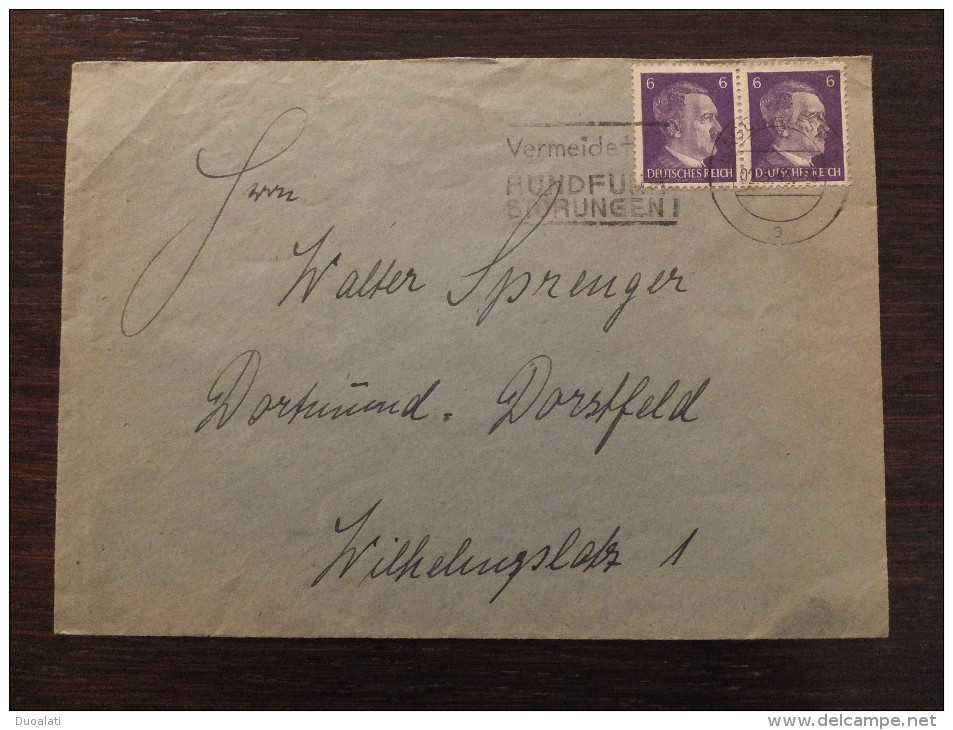 6 6 6 6
DEUTSCHES REICH DEUTSCHES REICH
Vermeidet
RUNDFUNK
STÖRUNGEN!
3
Herrn
Walter Sprenger
Dortmund-Dorstfeld
Wilhelmsplatz 1
Duoalati
www.delcampe.net